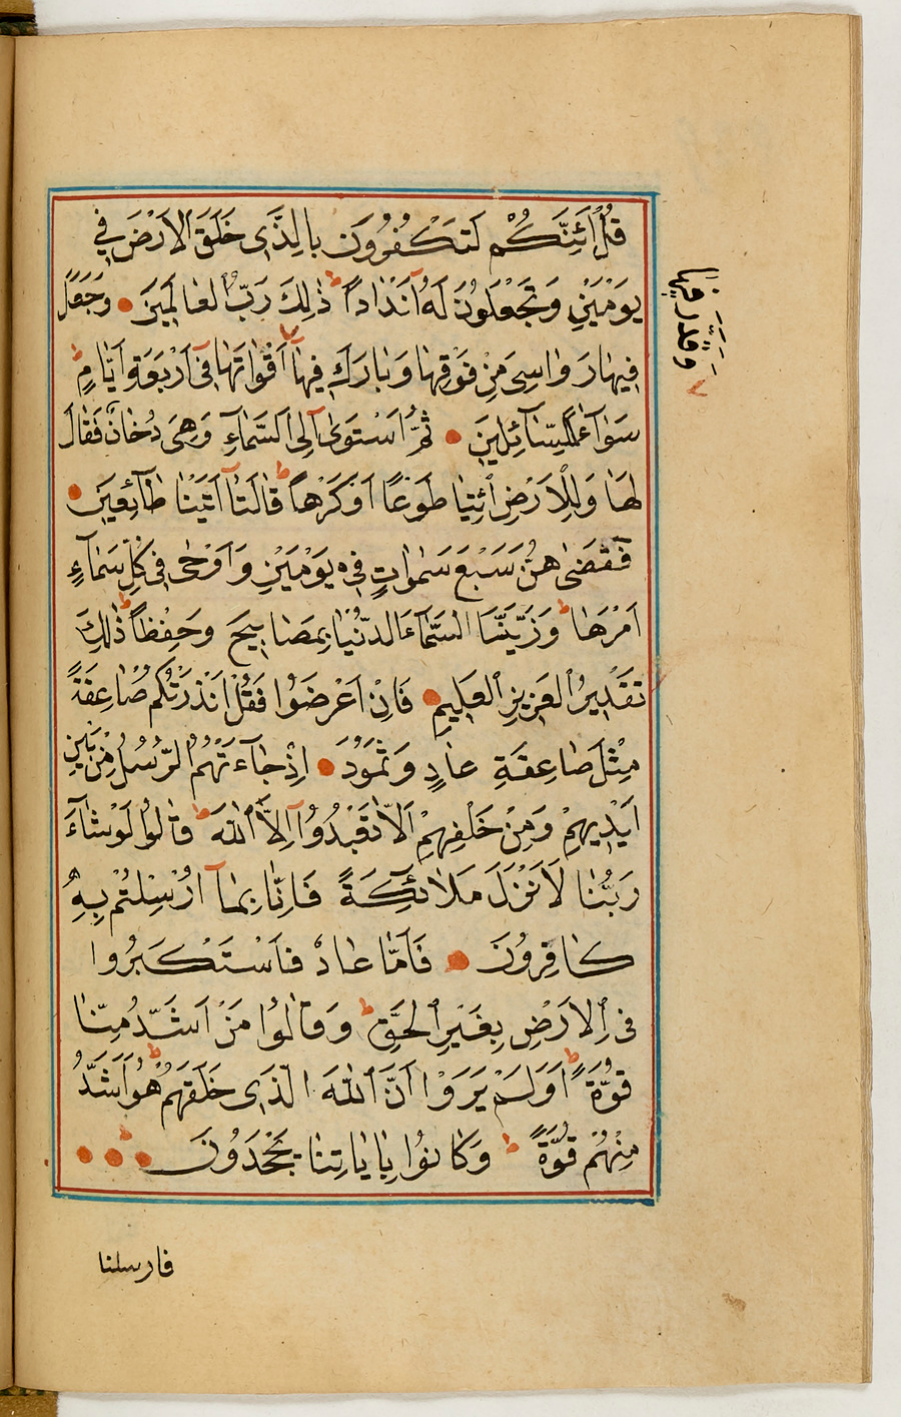 قُلْ اَئِنَّكُمْ لَتَكْفُرُونَ بِالَّذَى خَلَقَ الْاَرْضَ فِي
يَوْمَيْنِ وَتَجْعَلُونَ لَهُٓ اَنْدَاداً ذٰلِكَ رَبُّ الْعَالَمِينَ وَجَعَلَ
فِيهَا رَوَاسِىَ مِنْ فَوْقِهَا وَبَارَكَ فِيهَآ اَقْوَاتَهَا فِىٓ اَرْبَعَةِ اَيَّامٍ
سَوَآءً لِلسَّآئِلِينَ ثُمَّ اسْتَوٰىٓ اِلَى السَّمَآءِ وَهِىَ دُخَانٌ فَقَالَ
لَهَا وَلِلْاَرْضِ ائْتِيَا طَوْعًا اَوْ كَرْهًا قَالَتَآ اَتَيْنَا طَآئِعِينَ
فَقَضٰىهُنَّ سَبْعَ سَمٰوَاتٍ فِى يَوْمَيْنِ وَاَوْحٰى فِى كُلِّ سَمَآءٍ
اَمْرَهَا وَزَيَّنَّا السَّمَآءَ الدُّنْيَا بِمَصَابِيحَ وَحِفْظاً ذٰلِكَ
تَقْدِيرُ الْعَزِيزِ الْعَلِيمِ فَاِنْ اَعْرَضُوا فَقُلْ اَنْذَرْتُكُمْ صَاعِقَةً
مِثْلَ صَاعِقَةِ عَادٍ وَثَمُودَ اِذْ جَآءَتْهُمُ الرُّسُلُ مِنْ بَيْنِ
اَيْدِيهِمْ وَمِنْ خَلْفِهِمْ اَلَّا تَعْبُدُوٓا اِلَّا اللّٰهَ قَالُوا لَوْ شَآءَ
رَبُّنَا لَاَنْزَلَ مَلَائِكَةً فَاِنَّا بِمَآ اُرْسِلْتُمْ بِهِ
كَافِرُونَ فَاَمَّا عَادٌ فَاسْتَكْبَرُوا
فِى الْاَرْضِ بِغَيْرِ الْحَقِّ وَقَالُوا مَنْ اَشَدُّ مِنَّا
قُوَّةً اَوَلَمْ يَرَوْا اَنَّ اللّٰهَ الَّذَى خَلَقَهُمْ هُوَ اَشَدُّ
مِنْهُمْ قُوَّةً وَكَانُوا بِاٰيَاتِنَا يَجْحَدُونَ
وَقَدَّرَ فِيهَا
فارسلنا